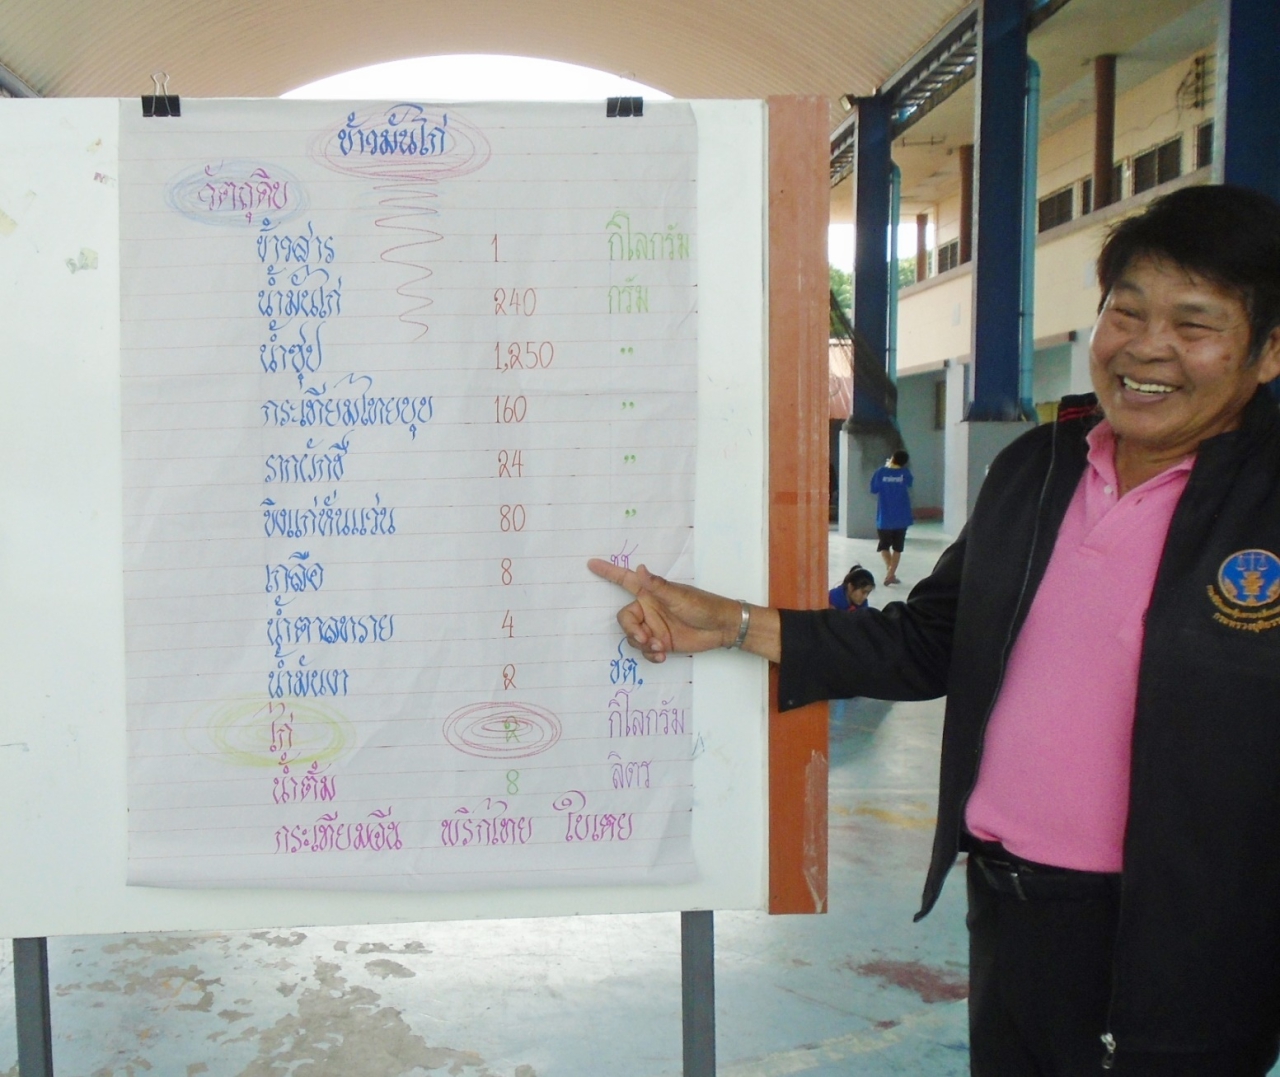 ข้าวมันไก่
วัตถุดิบ
ข้าวสาร 1 กิโลกรัม
น้ำมันไก่ 240 กรัม
น้ำซุป 1,250 "
กระเทียมไทยบุบ 160 "
รากผักชี 24 "
ขิงแก่หั่นแว่น 80 "
เกลือ 8 ชช
น้ำตาลทราย 4
น้ำมันงา 2 ชต.
ไก่ 2 กิโลกรัม
น้ำต้ม 8 ลิตร
กระเทียมจีน พริกไทย ใบเตย